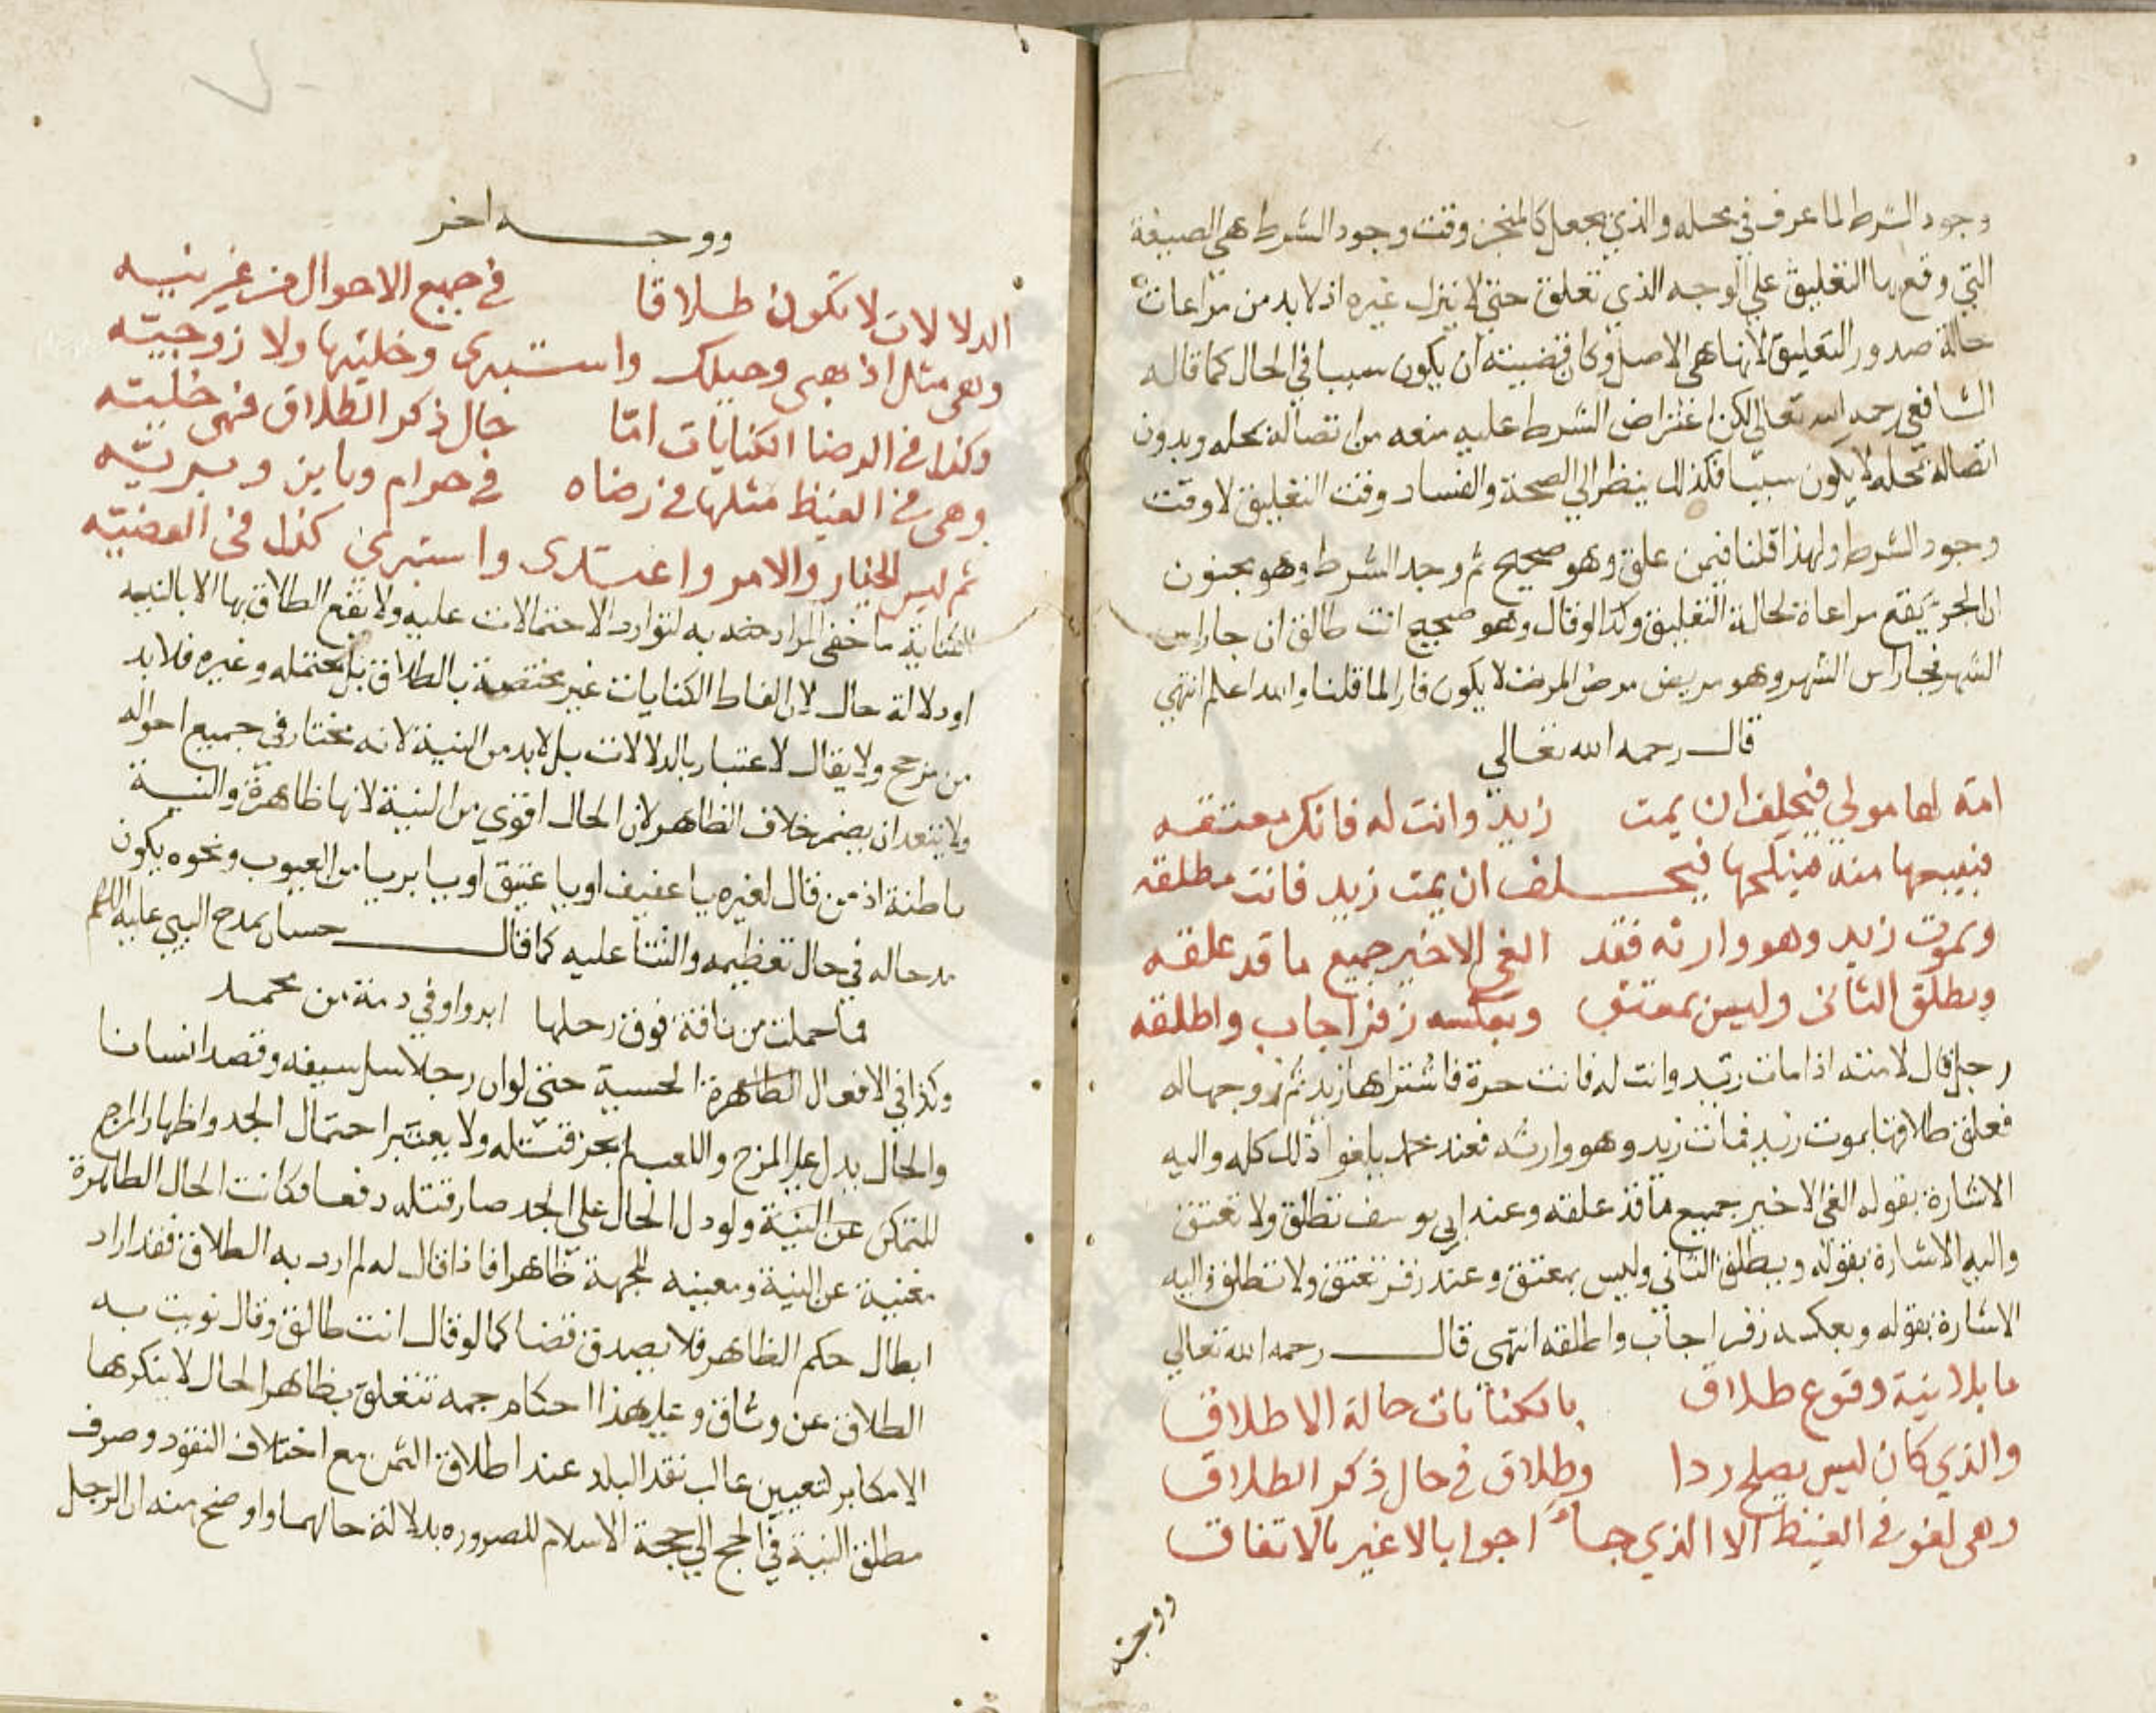 وجود الشرط لما عرف في محله والذي يجعل كالمنجز وقت وجود الشرط هي الصيغة
التي وقع بها التعليق علي الوجه الذي تعلق حتي لا ينزل غيره اذ لا بد من مراعات
حالة صدور التعليق لانها هي الاصل وكان قضيته ان يكون سببا في الحال كما قاله
الشافعي رحمه الله تعالي لكن اعتراض الشرط عليه منعه من اتصاله بمحله وبدون
اتصاله بمحله لا يكون سببا فكذلك ينظر الي الصحة والفساد وقت التعليق لا وقت
وجود الشرط ولهذا قلنا فيمن علق وهو صحيح ثم وجد الشرط وهو مجنون
ان الجزا يقع مراعاة لحالة التعليق وكذا لو قال وهو صحيح انت طالق ان جا راس
الشهر فجا راس الشهر وهو مريض مرض المرض لا يكون فارا لما قلنا والله اعلم انتهي
قال رحمه الله تعالي
امة لها مولي فيحلف ان يمت زيد وانت له فانك معتقه
فيبيعها منه فينكحها فيحلف ان يمت زيد فانت مطلقه
ويموت زيد وهو وارثه فقد الغي الاخير جميع ما قد علقه
ويطلق الثاني وليس بمعتق وبعكسه زفر اجاب واطلقه
رجل قال لامته اذا مات زيد وانت له فانت حرة فاشتراها زيد ثم زوجها له
فعلق طلاقها بموت زيد فمات زيد وهو وارثه فعند محمد يلغوا ذلك كله واليه
الاشارة بقوله الغي الاخير جميع ما قد علقه وعند ابي يوسف تطلق ولا تعتق
واليه الاشارة بقوله ويطلق الثاني وليس بمعتق وعند زفر تعتق ولا تطلق واليه
الاشارة بقوله وبعكسه زفر اجاب واطلقه انتهي قال رحمه الله تعالي
ما بلا نية وقوع طلاق بالكنايات حالة الاطلاق
والذي كان ليس يصلح ردا وطلاق في حال ذكر الطلاق
وهي لغو في الغيظ الا الذي جاء اجوابا لا غير بالاتفاق
ووجه
ووجه اخر
الدلالات لا تكون طلاقا في جميع الاحوال من غير نيه
وهي مثل اذهبي وحبلك واستبري وخليتها ولا زوجيته
وكذا في الرضا الكنايات امّا حال ذكر الطلاق فهي خليته
وهي في الغيظ مثلها في رضاه في حرام وباين وبريّه
ثم ليس الخيار والامر واعتدي واستبري كذا في القضيّه
الكناية ما خفي المراد به لتوارد الاحتمالات عليه ولا يقع الطلاق بها الا بالنيه
او دلالة حال لان الفاظ الكنايات غير مختصة بالطلاق بل يحتمله وغيره فلا بد
من مرجح ولا يقال لا عتبار بالدلالات بل لا بد من النية لانه مختار في جميع احواله
ولا يبعد ان يضمر خلاف الظاهر لان الحال اقوي من النية لانها ظاهرة والنية
باطنة اذ من قال لغيره يا عفيف او يا عتيق او يا بريا من العيوب ونحوه يكون
مدحا له في حال تعظيمه والثنا عليه كما قال حسان يمدح النبي عليه السلام
فما حملت من ناقة فوق رحلها ابر واوفي ذمة من محمد
وكذا في الافعال الظاهرة الحسية حتي لو ان رجلا سل سيفه وقصد انسانا
والحال يدل علي المزح واللعب لم يجز قتله ولا يعتبر احتمال الجد واظهار المزح
للتمكن عن النية ولو دل الحال علي الجد صار قتله دفعا فكانت الحال الظاهرة
مغنية عن النية ومعينه للجهة ظاهرا فاذا قال له لم ارد به الطلاق فقد اراد
ابطال حكم الظاهر فلا يصدق قضا كما لو قال انت طالق وقال نويت به
الطلاق عن وثاق وعلي هذا احكام جمه تتعلق بظاهر الحال لا ينكرها
الا مكابر لتعيين غالب نقد البلد عند اطلاق الثمن مع اختلاف النقود وصرف
مطلق النية في الحج الي حجة الاسلام للصروره بدلالة حالهما واوضح منه ان الرجل